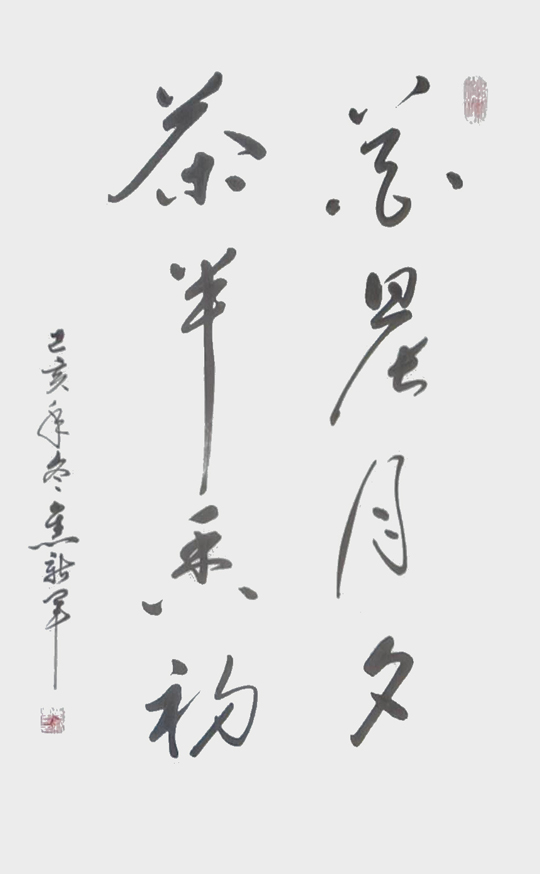 花晨月夕
茶半香初
己亥年冬焦新军